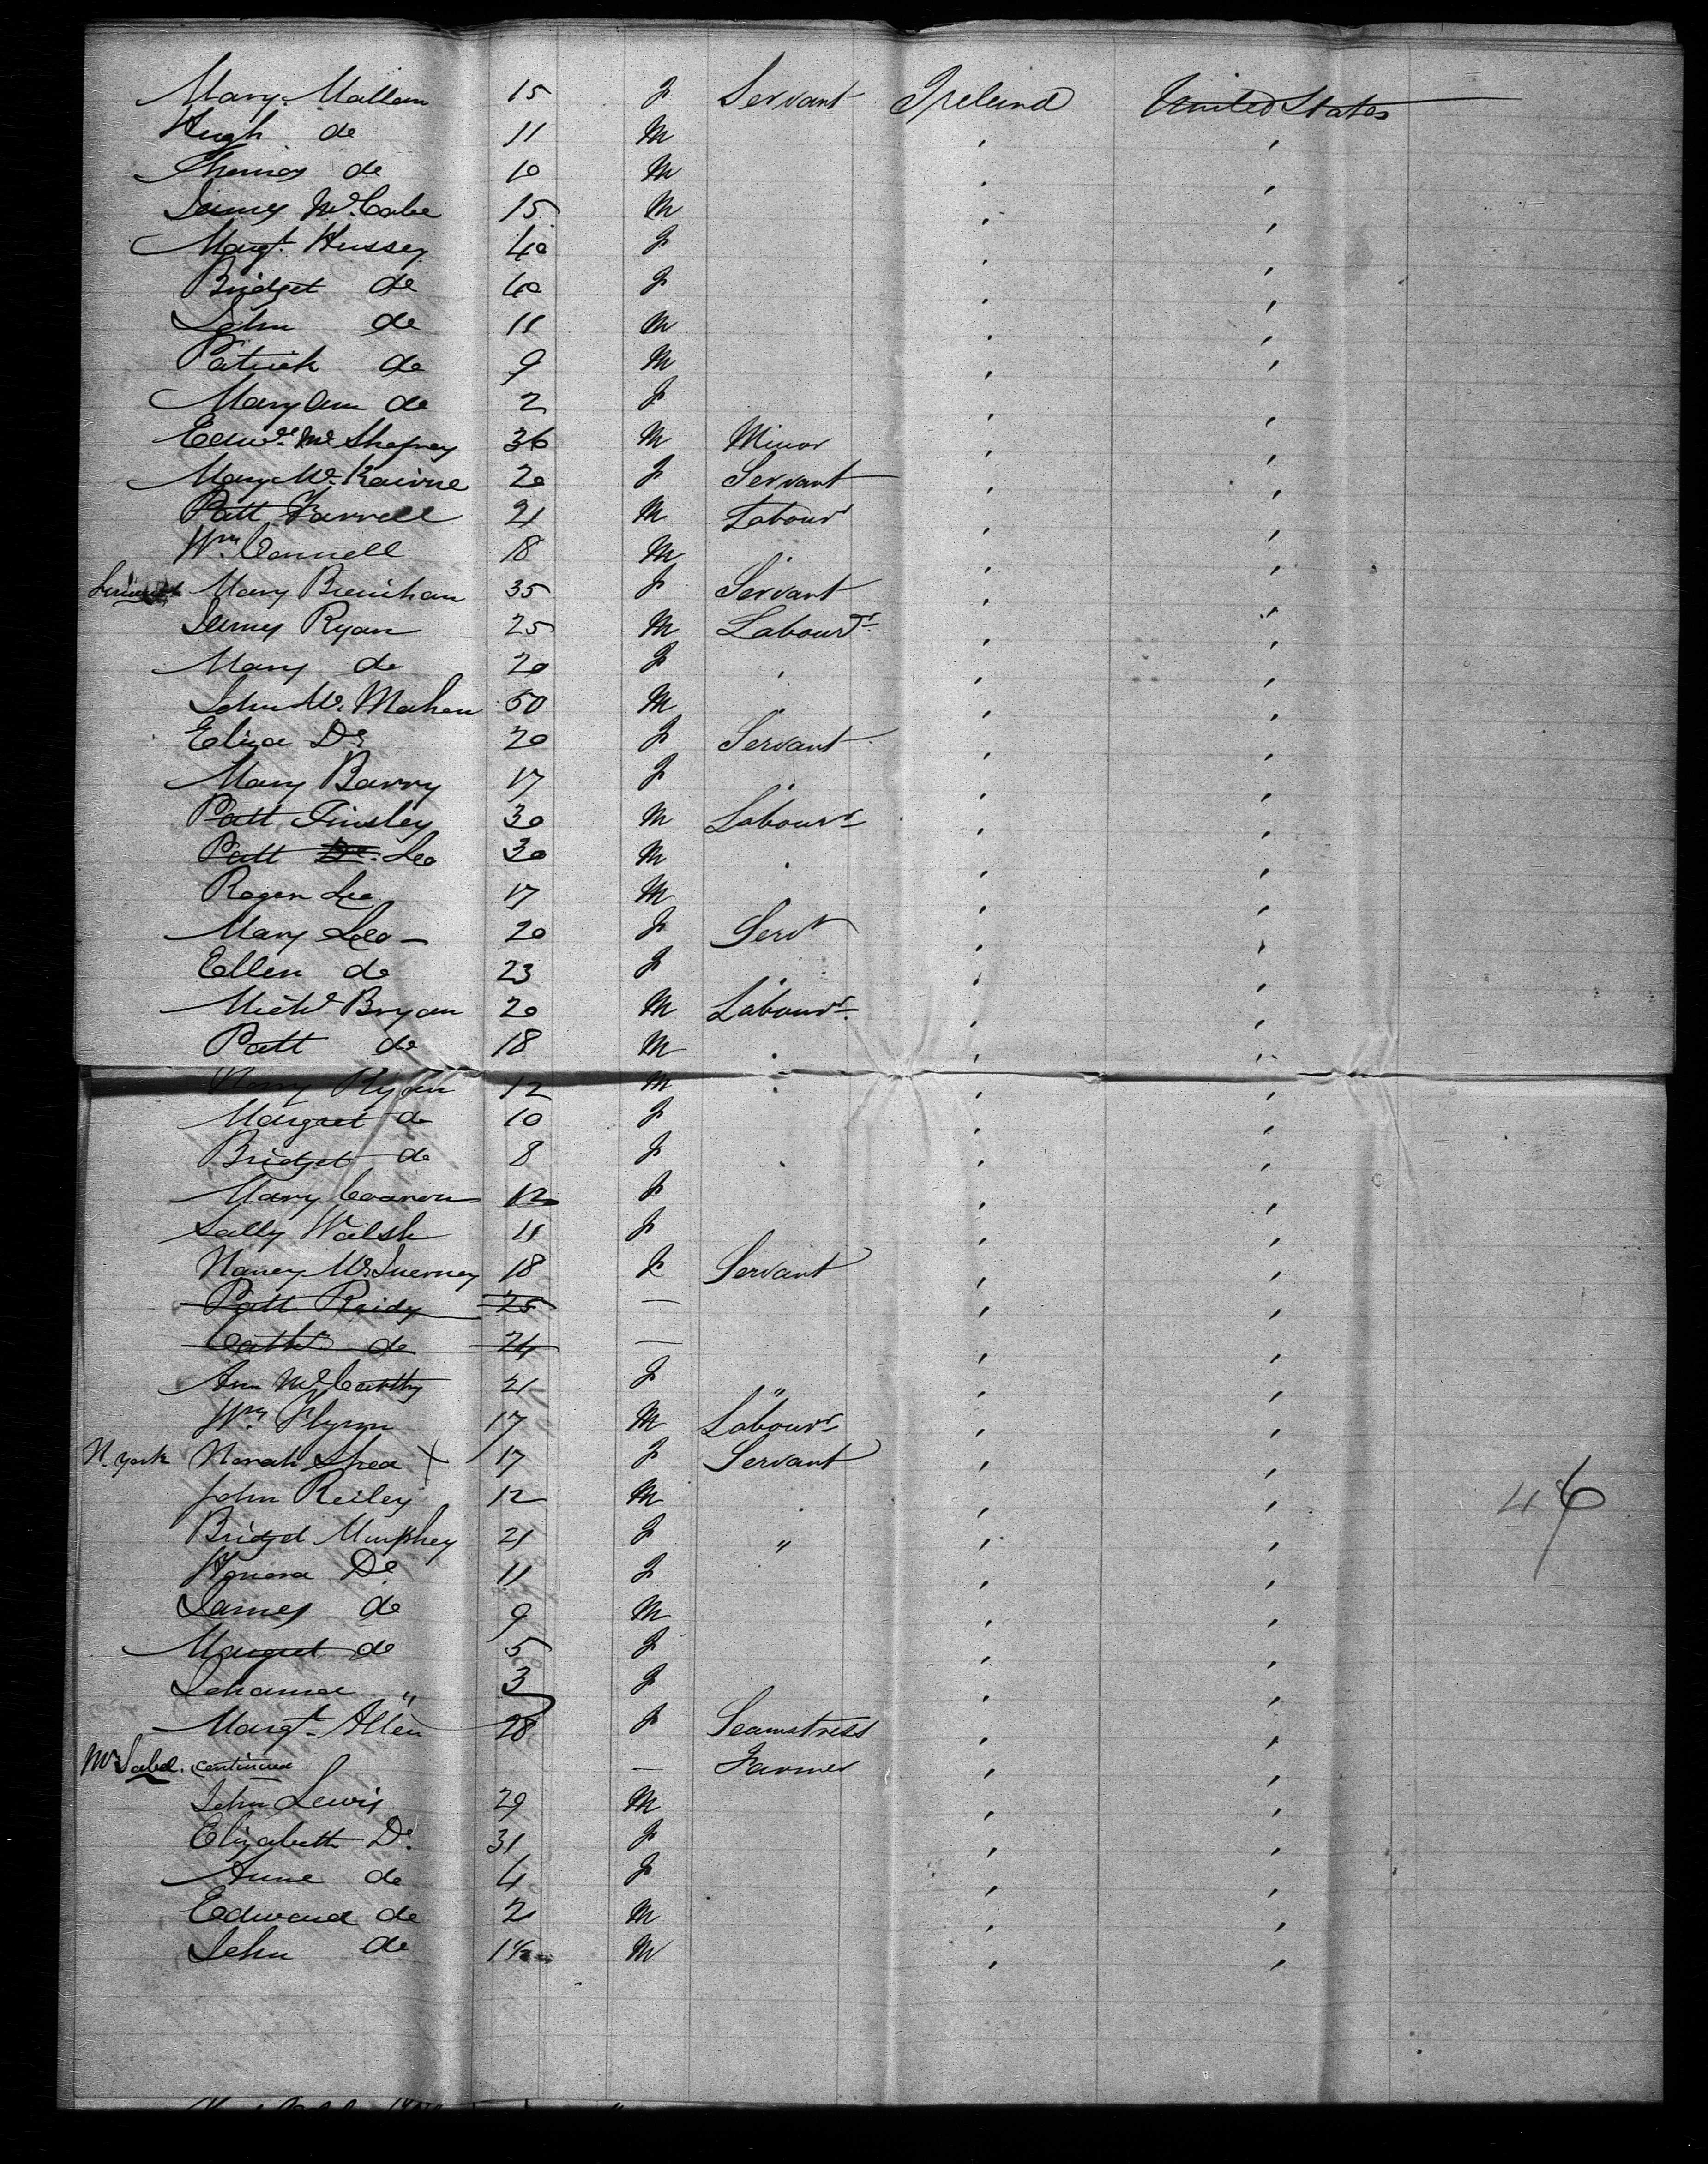 Mary Mallan 15 F Servant Ireland United States
Hugh do 11 M , ,
Thomas do 10 M , ,
James McCabe 15 M , ,
Margt. Hussey 40 F , ,
Bridget do 40 F , ,
John do 11 M , ,
Patrick do 9 M , ,
Mary Ann do 2 F , ,
Edwd. Mc 36 M Minor , ,
Mary Mc 20 F Servant , ,
Patt Farrell 21 M Labour , ,
Wm. Connell 18 M , ,
Mary 35 F Servant , ,
James Ryan 25 M Labourr , ,
Mary do 20 F , , ,
John Mc.Mahon 50 M , , ,
Eliza Do 20 F Servant , ,
Mary Barry 17 F , , ,
Patt Tinsley 30 M Labourr , ,
Patt Do. Leo 30 M , , ,
Roger Leo 17 M , ,
Mary Leo - 20 F Servt , ,
Ellen do 23 F , , ,
Michl Bryan 20 M Labourr , ,
Patt do 18 M , , ,
Ryan 12 M , , ,
Margret do 10 F , ,
Bridget do 8 F , ,
Mary 12 F , ,
Sally Walsh 11 F , ,
Nancy McInerney 18 F Servant , ,
Patt Reidy 25 — , ,
Cathe do 24 — , ,
Ann McCarthy 21 F " , ,
Wm Flynn 17 M Labourr , ,
N. York Norah Shea X 17 F Servant , ,
John Reiley 12 M , , 46
Bridget Murphey 21 F " , ,
Honora Do 11 F , ,
James do 9 M , ,
Margret do 5 F , ,
Johanna " 3 F , ,
Margt. Allen 28 F Seamstress , ,
continued — Farmer , ,
John Lewis 29 M , ,
Elizabeth Do. 31 F , ,
Anne do 4 F , ,
Edward do 2 M , ,
John do 1 1/2 M , ,